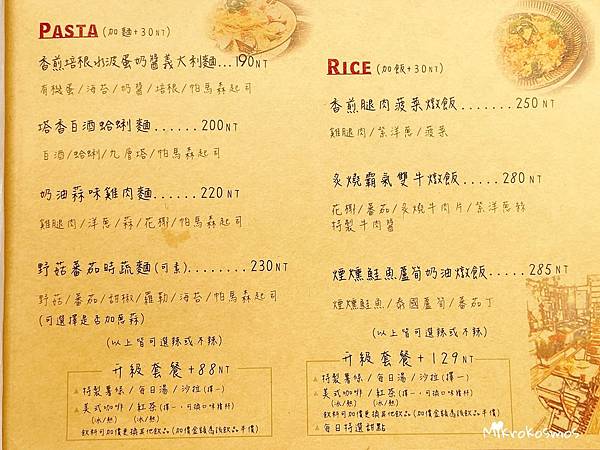 PASTA (加麵+30NT)
香煎培根水波蛋奶醬義大利麵...190NT
有機蛋/海苔/奶醬/培根/帕馬森起司
塔香白酒蛤蜊麵......200NT
白酒/蛤蜊/九層塔/帕馬森起司
奶油蒜味雞肉麵......220NT
雞腿肉/洋蔥/蒜/花椰/帕馬森起司
野菇番茄時蔬麵(可素).........230NT
野菇/番茄/甜椒/羅勒/海苔/帕馬森起司
(可選擇是否加蔥蒜)
(以上皆可選辣或不辣)
升級套餐+88NT
特製薯條/每日湯/沙拉(擇一)
美式咖啡/紅茶(擇一,可換口味糖杯)
(冰/熱) (冰/熱)
飲料可加價更換其他飲品(加價金額為該飲品半價)
RICE (加飯+30NT)
香煎腿肉菠菜燉飯.......250NT
雞腿肉/紫洋蔥/菠菜
炙燒霸氣雙牛燉飯......280NT
花椰/番茄/炙燒牛肉片/紫洋蔥絲
特製牛肉醬
煙燻鮭魚蘆筍奶油燉飯......285NT
煙燻鮭魚/泰國蘆筍/番茄丁
(以上皆可選辣或不辣)
升級套餐+129NT
特製薯條/每日湯/沙拉(擇一)
美式咖啡/紅茶(擇一,可換口味糖杯)
(冰/熱) (冰/熱)
飲料可加價更換其他飲品(加價金額為該飲品半價)
每日特選甜點
Mikrokosmos